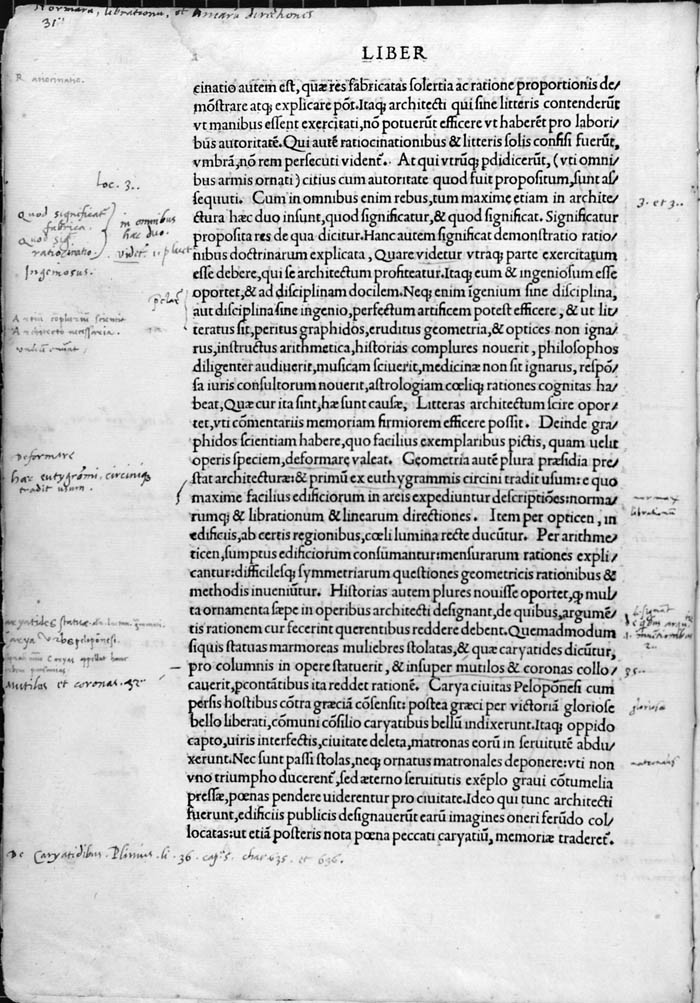 Normara, librationū, et lineara directiones
31
LIBER
Ratiocinatio.
cinatio autem est, quæ res fabricatas solertia ac ratione proportionis de/
mōstrare atq; explicare pōt. Itaq; architecti qui sine litteris contenderūt
vt manibus essent exercitati, nō potuerūt efficere vt haberēt pro labori/
bus autoritatē. Qui autē ratiocinationibus & litteris solis confisi fuerūt,
vmbrā, nō rem persecuti vident. At qui vtrūq; pdidicerūt, (vti omni/
bus armis ornati) citius cum autoritate quod fuit propositum, sunt as/
sequuti. Cum in omnibus enim rebus, tum maxime etiam in archite/
ctura hæc duo insunt, quod significatur, & quod significat. Significatur
proposita res de qua dicitur. Hanc autem significat demonstratio ratio/
nibus doctrinarum explicata, Quare videtur vtraq; parte exercitatum
esse debere, qui se architectum profiteatur. Itaq; eum & ingeniosum esse
oportet, & ad disciplinam docilem. Neq; enim ingenium sine disciplina,
aut disciplina sine ingenio, perfectum artificem potest efficere, & ut lit/
teratus sit, peritus graphidos, eruditus geometria, & optices non igna/
rus, instructus arithmetica, historias complures nouerit, philosophos
diligenter audiuerit, musicam sciuerit, medicinæ non sit ignarus, respō/
sa iuris consultorum nouerit, astrologiam cœliq; rationes cognitas ha/
beat, Quæ cur ita sint, hæ sunt causæ, Litteras architectum scire opor/
tet, vti cōmentariis memoriam firmiorem efficere possit. Deinde gra/
phidos scientiam habere, quo facilius exemplaribus pictis, quam uelit
operis speciem, deformare valeat. Geometria autē plura præsidia pre/
stat architecturæ: & primū ex euthygrammis circini tradit usum: e quo
maxime facilius edificiorum in areis expediuntur descriptiōes: norma/
rumq; & librationum & linearum directiones. Item per opticen, in
edificiis, ab certis regionibus, cœli lumina recte ducūtur. Per arithme/
ticen, sumptus edificiorum consumantur: mensurarum rationes expli/
cantur: difficilesq; symmetriarum questiones geometricis rationibus &
methodis inueniūtur. Historias autem plures nouisse oportet, q mul/
ta ornamenta sæpe in operibus architecti designant, de quibus, argumē/
tis rationem cur fecerint querentibus reddere debent. Quemadmodum
siquis statuas marmoreas muliebres stolatas, & quæ caryatides dicūtur,
pro columnis in opere statuerit, & insuper mutilos & coronas collo/
cauerit, pcontātibus ita reddet rationē. Carya ciuitas Pelopōnesi cum
persis hostibus cōtra græciā cōsensit: postea græci per victoriā gloriose
bello liberati, cōmuni cōsilio caryatibus bellū indixerunt. Itaq; oppido
capto, uiris interfectis, ciuitate deleta, matronas eorū in seruitutē abdu/
xerunt. Nec sunt passi stolas, neq; ornatus matronales deponere: vti non
vno triumpho ducerent, sed æterno seruitutis exēplo graui cōtumelia
pressæ, pœnas pendere uiderentur pro ciuitate. Ideo qui tunc architecti
fuerunt, edificiis publicis designauerūt earū imagines oneri ferūdo col/
locatas: ut etiā posteris nota pœna peccati caryatiū, memoriæ traderet.
loc. 3..
Quod significat
fabrica.
Quod sig
ratiocinatio.
in omnibus
hæc duo.
Ingeniosus.
Deformare
hac eutygrāmi, circiniq;
tradit usum.
caryatides statuæ
Carya Vrbs peloponesi
Mutilos et coronas. 32
3. et 3..
normar
librationum
35..
gloriose
matronalis
De Caryatidibus. Plinius. li. 36. cap. 5. char. 635. et 636.